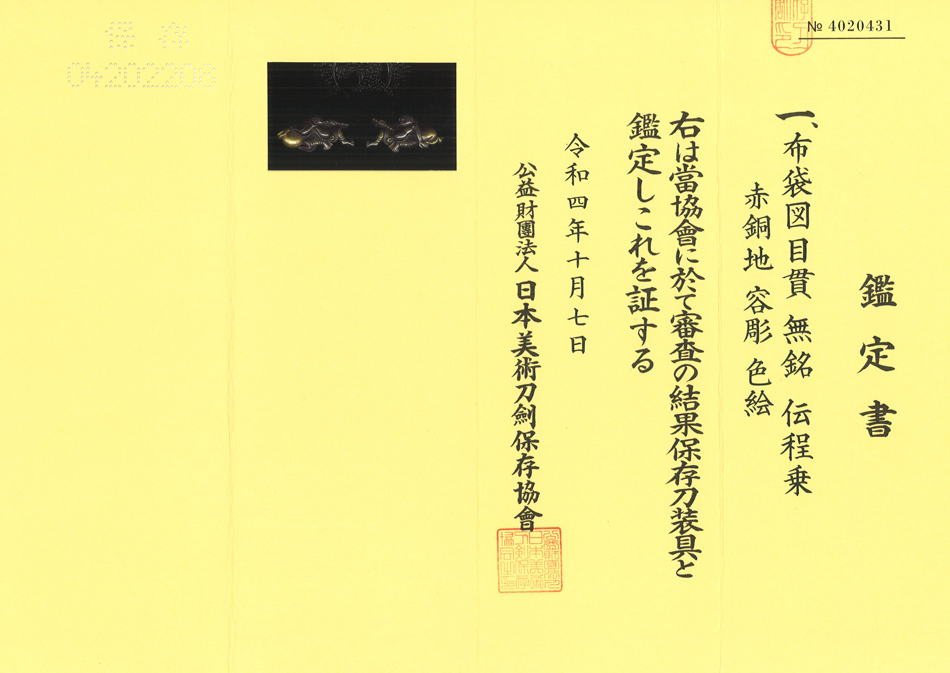 № 4020431
鑑定書
一、布袋図目貫 無銘 伝程乗
赤銅地 容彫 色絵
右は當協會に於て審査の結果保存刀装具と
鑑定しこれを証する
令和四年十月七日
公益財團法人 日本美術刀劍保存協會
保存
04202208